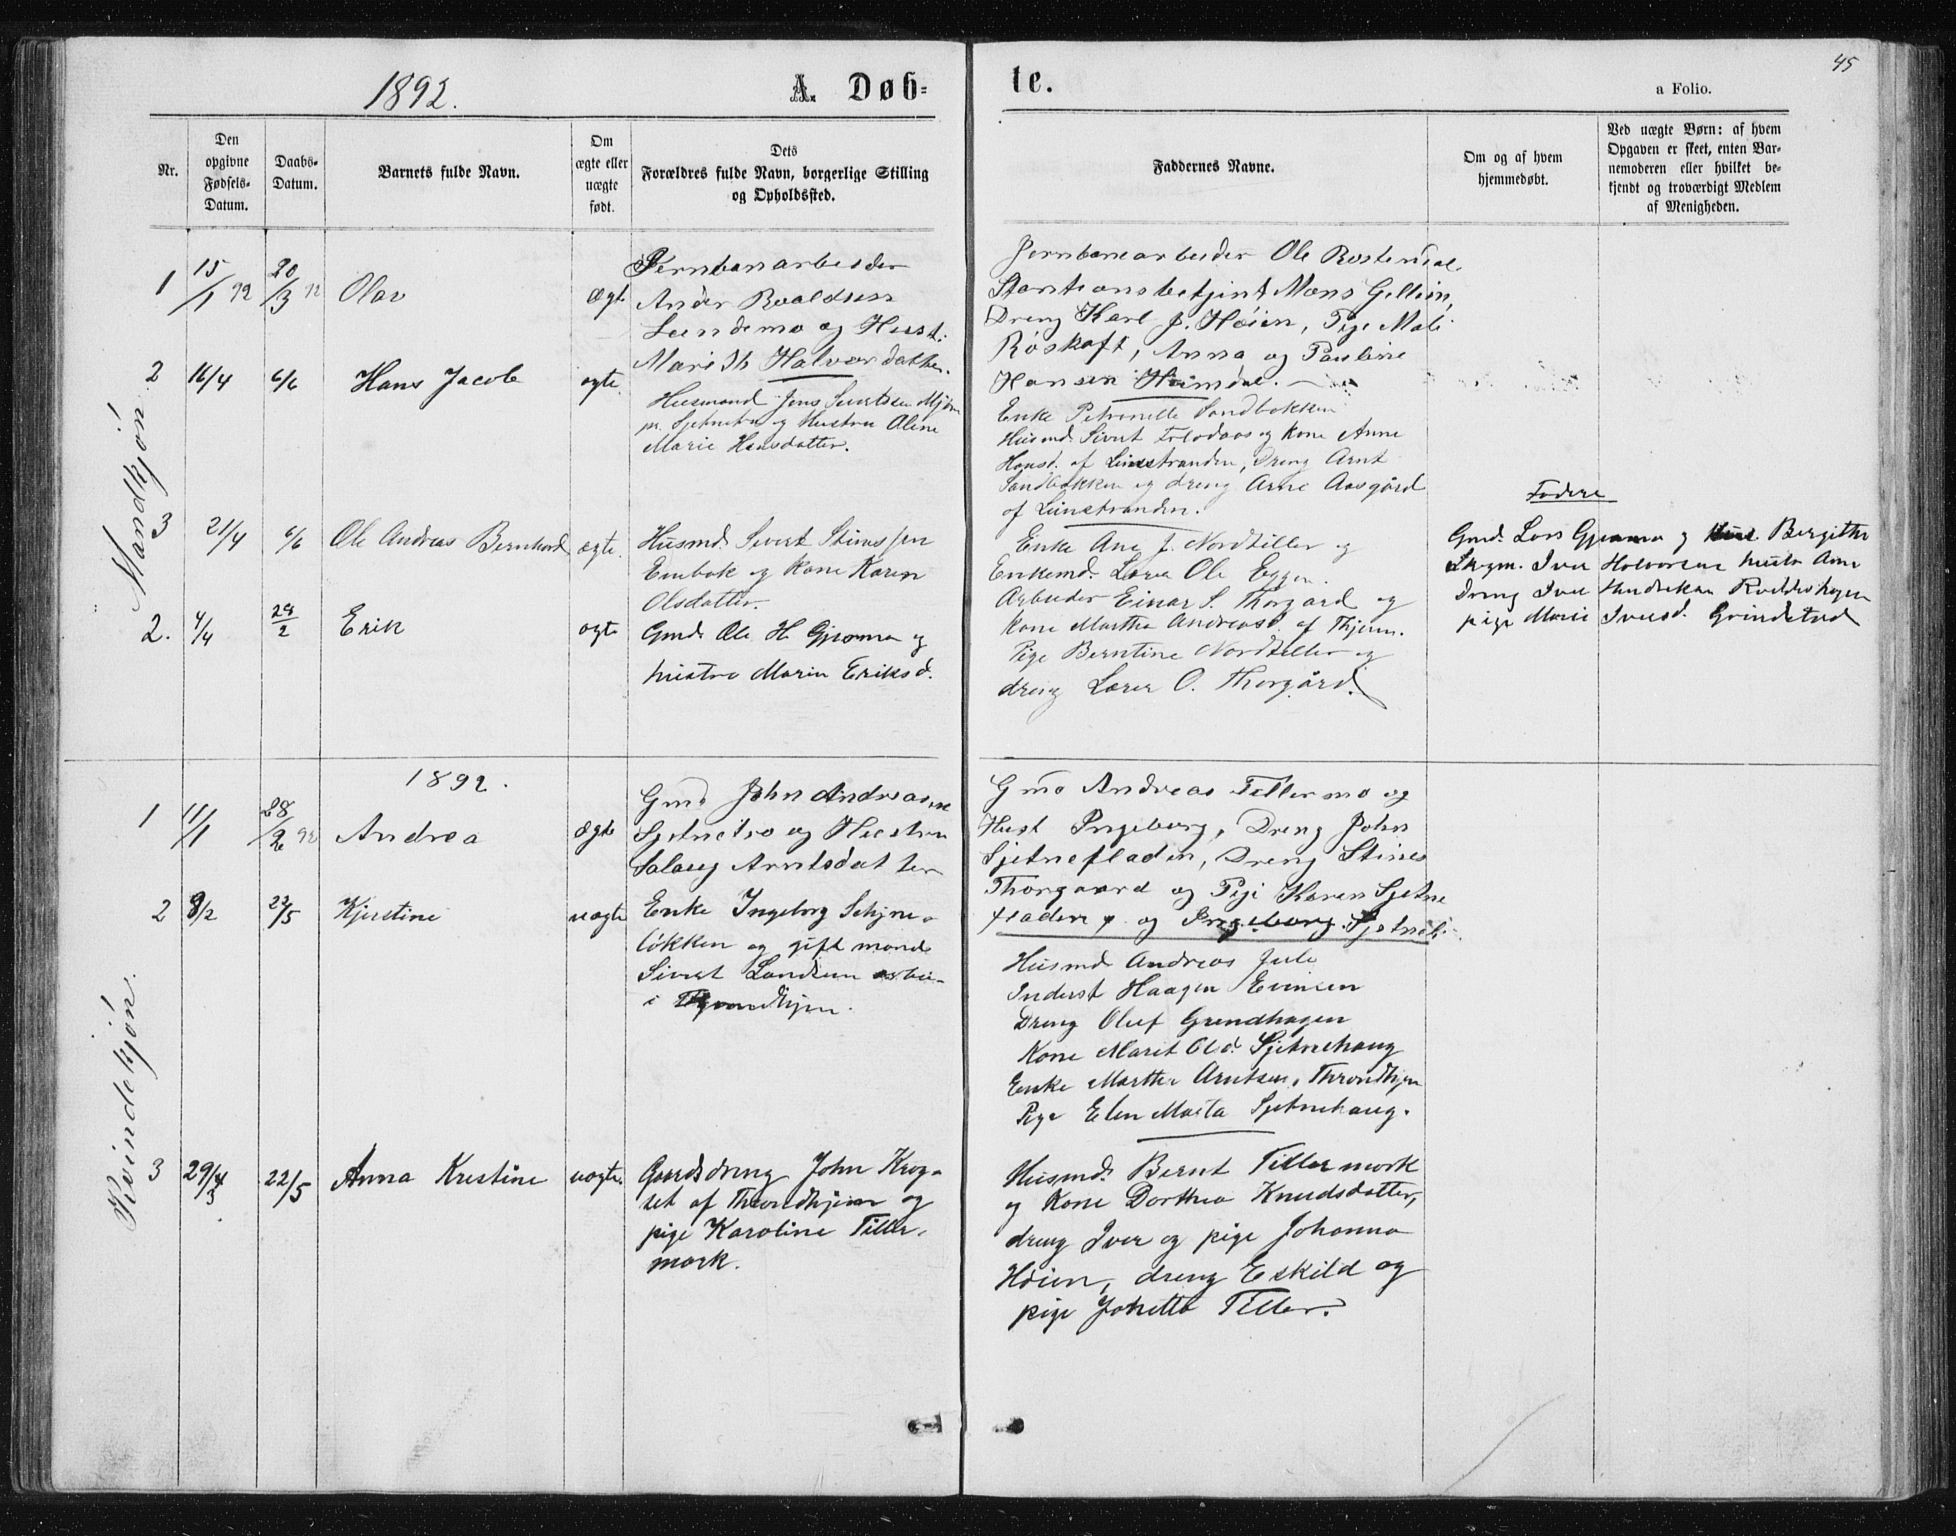 1892.
A. Døb-
te.
45
a Folio.
Nr.
Den opgivne Fødsels-Datum.
Daabs-Datum.
Barnets fulde Navn.
Om ægte eller uægte født.
Dets
Forældres fulde Navn, borgerlige Stilling
og Opholdssted.
Faddernes Navne.
Om og af hvem
hjemmedøbt.
Ved uægte Børn: af hvem
Opgaven er skeet, enten Bar-
nemoderen eller hvilket be-
kjendt og troværdigt Medlem
af Menigheden.
Mandkjøn
1 15/1 92 20/3 92 Olav ægte
Jernbanarbeider
Anders Roaldsen
Lundemo og Hust.
Marit Halvorsdatter.
Jernbanearbeider Ole Rostendal
Stastionsbetjent Mons Gellein,
Dreng Karl J. Høien, Pige Mali
Røskaft, Anna og Pauline
Hansen Heimdal.
2 16/4 6/6 Hans Jacob ægte
Husmand Jens Sivertsen
pr. Sjetnetrø og Hustru Oline
Marie Hansdatter.
Enke Petronelle Sandbakken
Husmd. Sivert og Kone Anne
Hansd. af Leinstranden, Dreng Arnt
Sandbakken og dreng Arne Aasgård
af Leinstranden.
3 21/4 6/6 Ole Andreas Bernhard ægte.
Husmd. Sivert Stinussen
Enebak og kone Karen
Olsdatter.
Enke Ane J. Nordtiller og
Enkemd. Lars Ole Eggen.
Arbeider Einar S. Thorgard og
kone Martha Andreasd. af Thjem.
Pige Berntine Nordtiller og
dreng Lars O. Thorgård.
2. 4/4 28/2 Erik ægte
Gmd. Ole H. Gjømna og
hustro Marin Eriksd.
Fadere
Gmd. Lars Gjømna og Bergitha
Iver Halvorsen hustr Ane
Dreng Iver Hendrikson
pige Marie Iversd. Grindstad
Kvindekjøn.
1892.
1 11/1 28/2 92 Andrea ægte
Gmd John Andreasen
Sjetnetrø og Hustru
Solaug Arntsdatter
Gmd Andreas Tillermo og
Hust Ingeborg, Dreng John
Sjetnefladen, Dreng Stines
Thorgaard og Pige Karen Sjetne
fladen og Ingeborg
2 8/2 22/5 Kjerstine uægte
Enke Ingeborg Sehjne-
løkken og gift mand
Sivert Landsem
i Trondhjem.
Husmd Andreas Jule
Inderst Haagen Evinsen
Dreng Oluf Grendhagen
Kone Marit Old. Sjetnehaug
Enke Marthe Arntsen, Throndhjem
Pige Elen Marta Sjetnehaug.
3 29/4 22/5 Anna Kristine uægte.
Gaardsdreng John Krog-
set af Throndhjem og
pige Karoline Tiller-
mark.
Husmd. Bernt Tillermark
og Kone Dorthea Knudsdatter,
dreng Iver og pige Johanna
Høien, dreng Eskild og
pige Johetta Tiller.